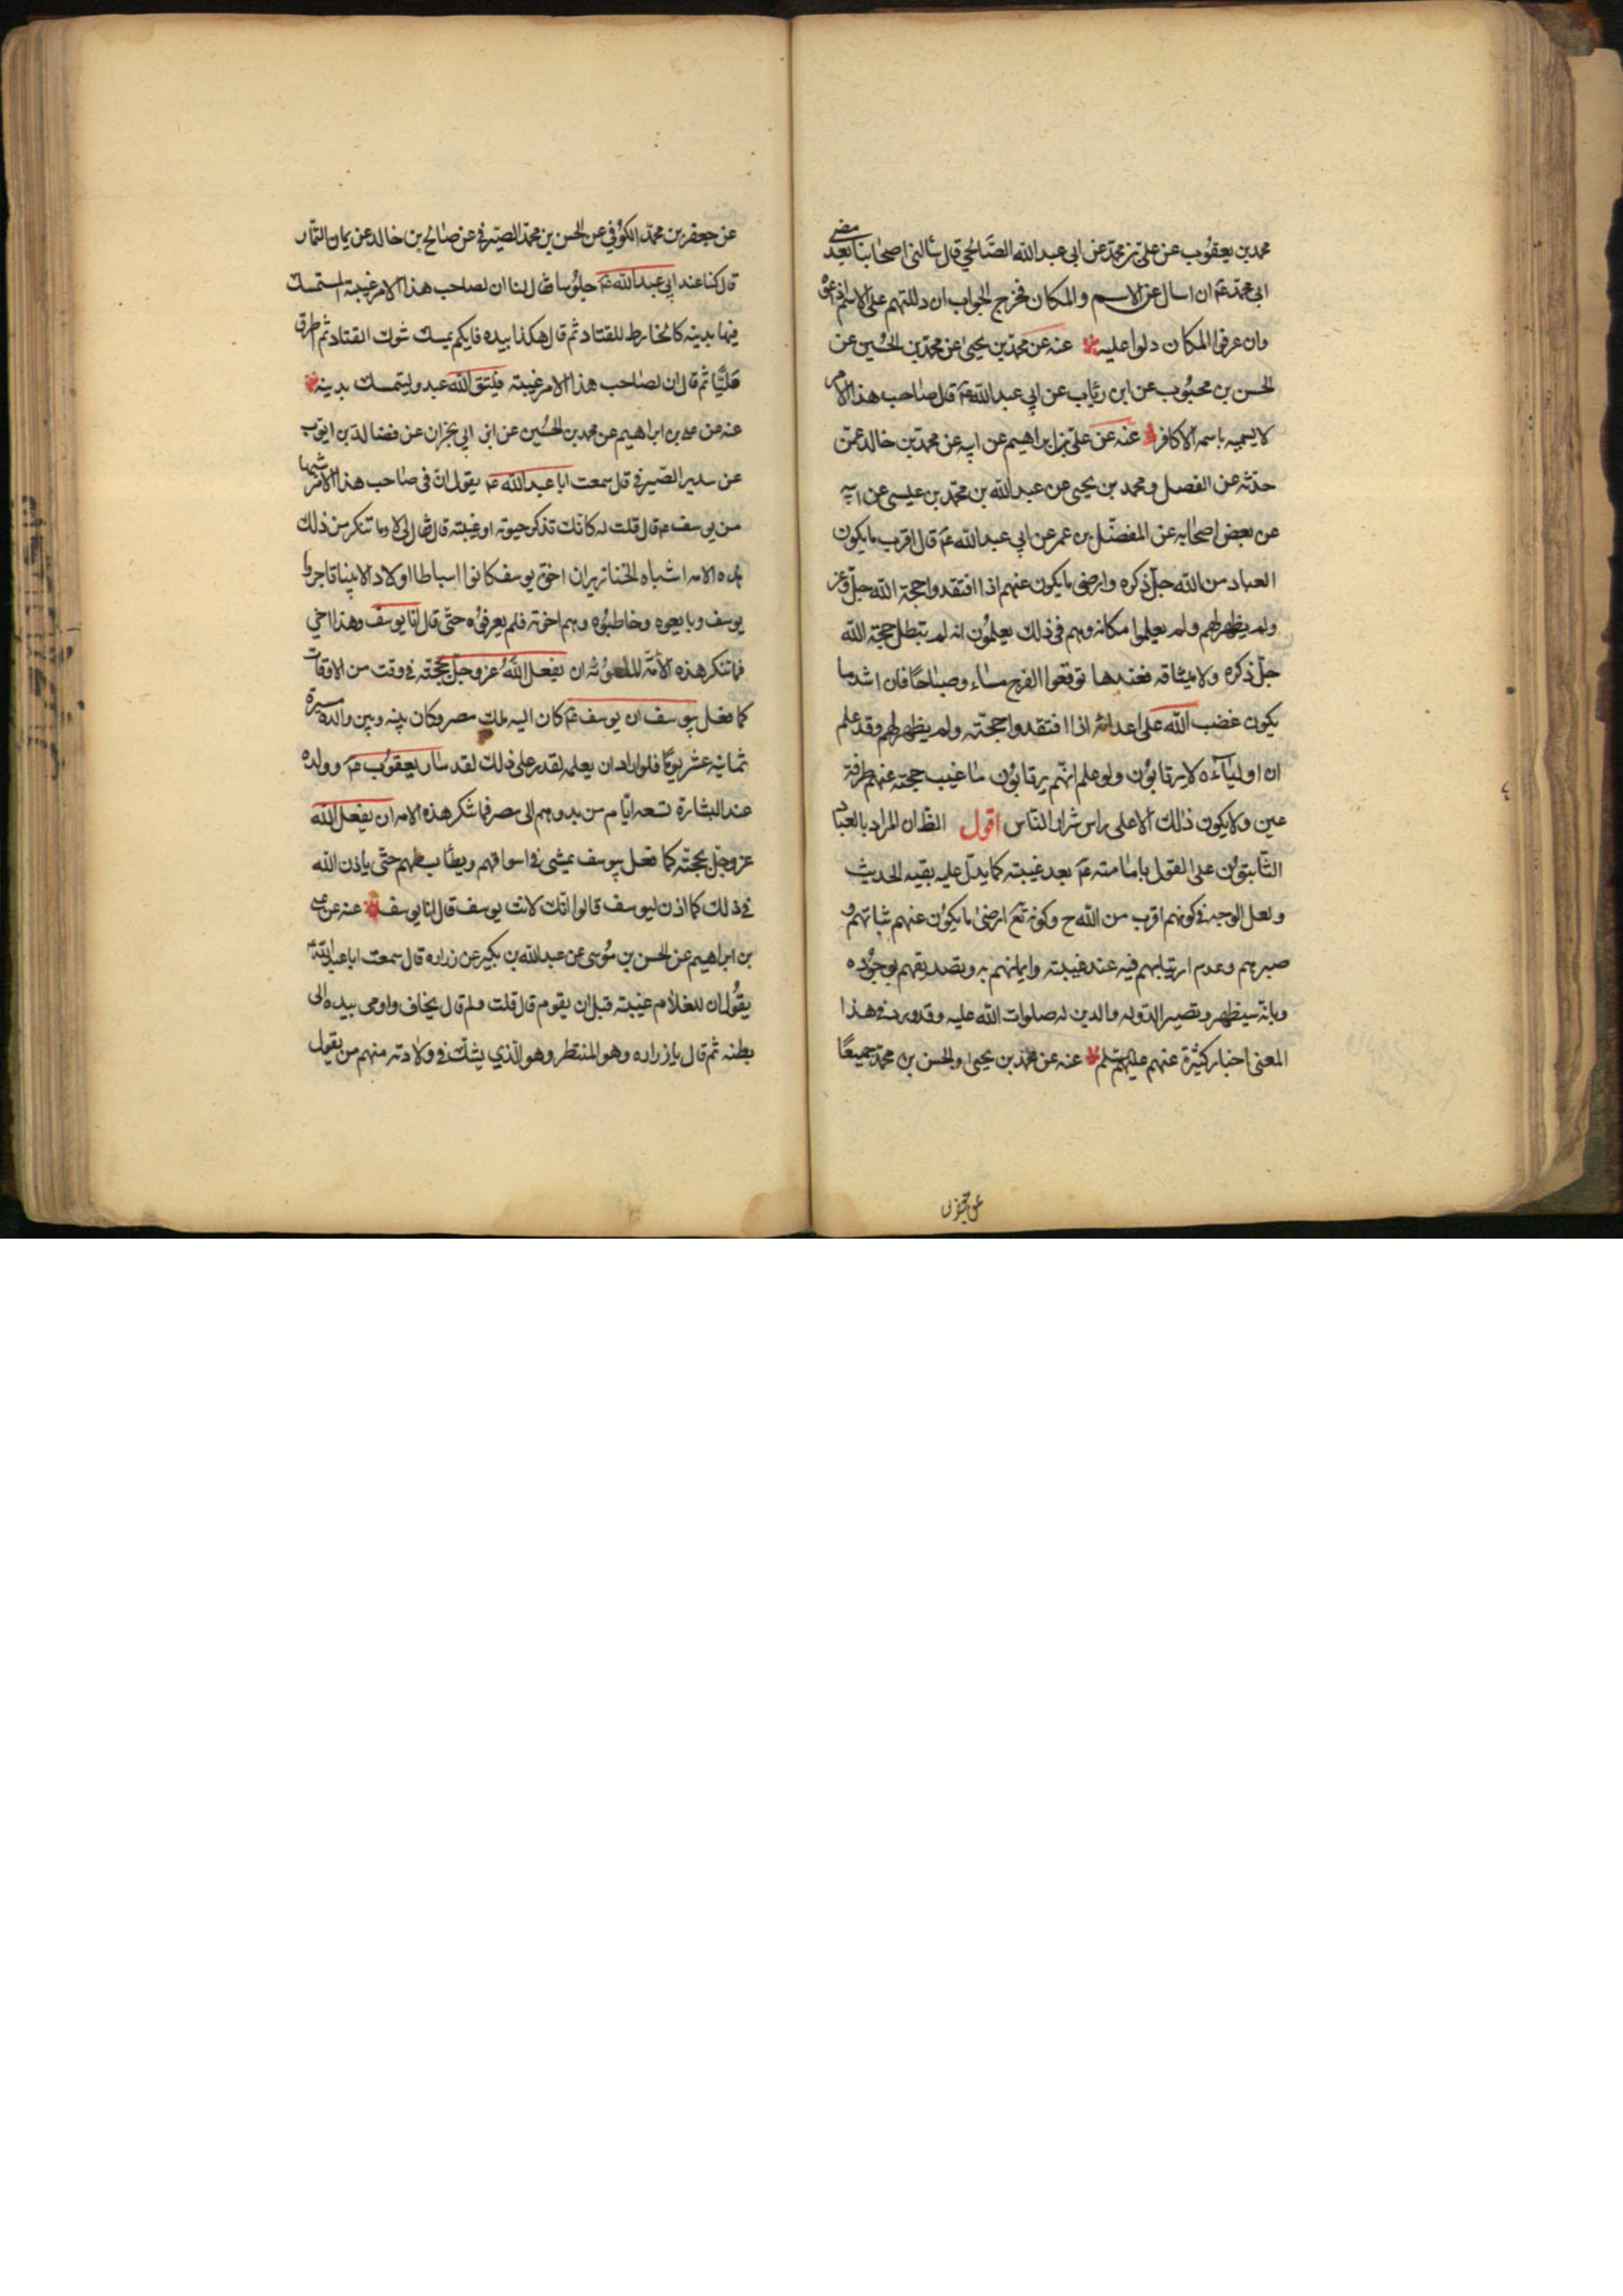 محمد بن يعقوب عن علي بن محمد عن ابي عبد الله الصالحي قال سألني اصحابنا بعد مضي
ابي محمد عم ان اسال عن الاسم والمكان فخرج الجواب ان دللتهم على الاسم اذاعوه
وان عرفوا المكان دلوا عليه عنه عن محمد بن يحيى عن محمد بن الحسين عن
الحسن بن محبوب عن ابن رئاب عن ابي عبد الله عم قال صاحب هذا الامر
لا يسميه باسمه الا كافر عنه عن علي بن ابراهيم عن ابيه عن محمد بن خالد عمن
حدثه عن الفضل ومحمد بن يحيى عن عبد الله بن محمد بن عيسى عن ابيه
عن بعض اصحابه عن المفضل بن عمر عن ابي عبد الله عم قال اقرب ما يكون
العباد من الله جل ذكره وارضى ما يكون عنهم اذا افتقدوا حجة الله جل وعز
ولم يظهر لهم ولم يعلموا مكانه وهم في ذلك يعلمون انه لم تبطل حجة الله
جل ذكره ولا ميثاقه فعندها توقعوا الفرج مساء وصباحا فان اشد ما
يكون غضب الله على اعدائه اذا افتقدوا حجته ولم يظهر لهم وقد علم
ان اولياءه لا يرتابون ولو علم انهم يرتابون ما غيب حجته عنهم طرفة
عين ولا يكون ذلك الا على راس شرار الناس اقول الظ ان المراد بالعباد
الثابتون على القول بامامته عم بعد غيبته كما يدل عليه بقيه الحديث
ولعل الوجه في كونهم اقرب من الله ح وكونه تع ارضى ما يكون عنهم ثباتهم و
صبرهم وعدم ارتيابهم فيه عند غيبته وايمانهم به وتصديقهم بوجوده
وبانه سيظهر وتصير الدوله والدين له صلوات الله عليه وقد ورد في هذا
المعنى اخبار كثيرة عنهم عليهم سلم عنه عن محمد بن يحيى والحسن بن محمد جميعا
عن جعفر بن
عن جعفر بن محمد الكوفي عن الحسن بن محمد الصيرفي عن صالح بن خالد عن يمان التمار
قال كنا عند ابي عبد الله عم جلوسا فقال لنا ان لصاحب هذا الامر غيبة المستمسك
فيها بدينه كالخارط للقتاد ثم قال هكذا بيده فايكم يمسك شوك القتاد ثم اطرق
مليا ثم قال ان لصاحب هذا الامر غيبته فليتق الله عبد وليتمسك بدينه
عنه عن علي بن ابراهيم عن محمد بن الحسين عن ابن ابي نجران عن فضالة بن ايوب
عن سدير الصيرفي قال سمعت ابا عبد الله عم يقول ان في صاحب هذا الامر شبها
من يوسف عم قال قلت له كانك تذكر حيوته او غيبته قال فقال لي لا وما تنكر من ذلك
هذه الامه اشباه الخنازير ان اخوة يوسف كانوا اسباطا اولاد الانبياء تاجروا
يوسف وبايعوه وخاطبوه وهم اخوته فلم يعرفوه حتى قال انا يوسف وهذا اخي
فما تنكر هذه الامه الملعونه ان يفعل الله عز وجل بحجته في وقت من الاوقات
كما فعل بيوسف ان يوسف عم كان اليه ملك مصر وكان بينه وبين والده مسيرة
ثمانيه عشر يوما فلو اراد ان يعلمه لقدر على ذلك لقد سار يعقوب عم وولده
عند البشارة تسعه ايام من بدوهم الى مصر فما تنكر هذه الامه ان يفعل الله
عز وجل بحجته كما فعل بيوسف يمشي في اسواقهم ويطأ بسطهم حتى ياذن الله
في ذلك كما اذن ليوسف قالوا انك لانت يوسف قال انا يوسف عنه عن علي
بن ابراهيم عن الحسن بن موسى عن عبد الله بن بكير عن زراره قال سمعت ابا عبد الله عم
يقول ان للغلام غيبته قبل ان يقوم قال قلت ولم قال يخاف واومى بيده الى
بطنه ثم قال يا زراره وهو المنتظر وهو الذي يشك في ولادته منهم من يقول